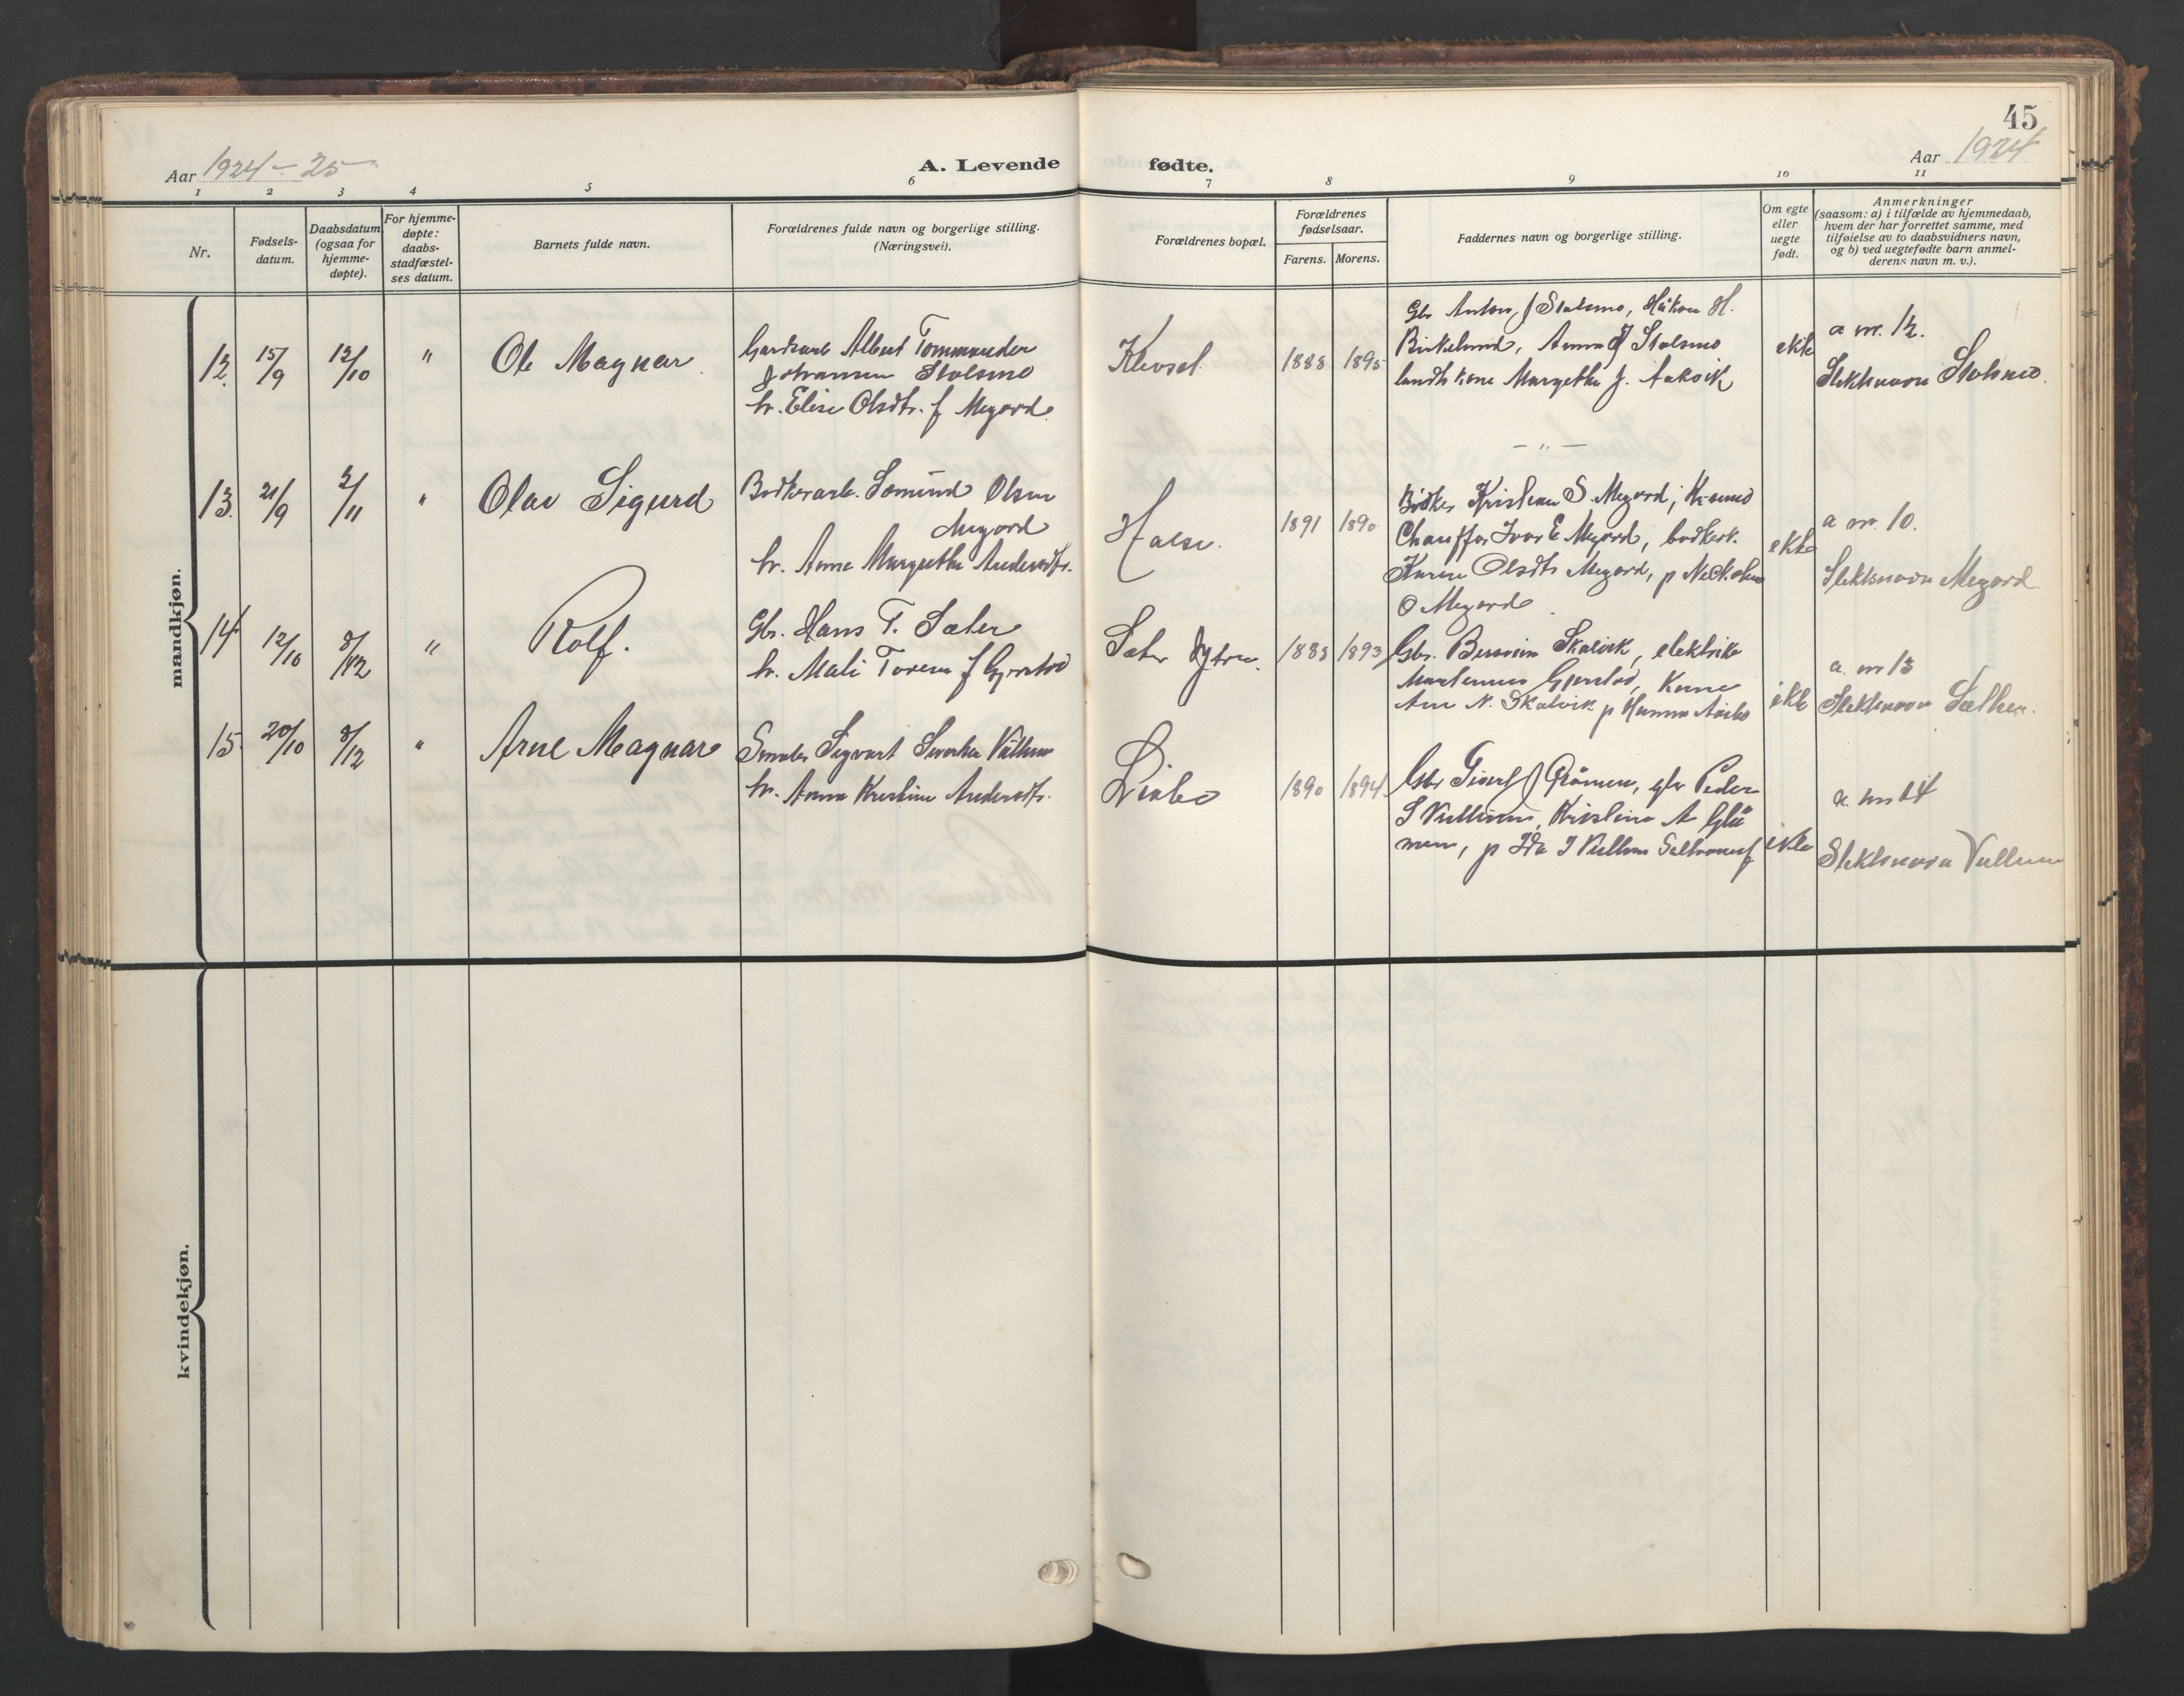 45
Aar 1924 - 25
A. Levende
fødte.
Aar 1924
1 2 3 4 5 6 7 8 9 10 11
Nr.
Fødsels-
datum.
Daabsdatum
(ogsaa for
hjemme-
døpte).
For hjemme-
døpte:
daabs-
stadfæstel-
ses datum.
Barnets fulde navn.
Forældrenes fulde navn og borgerlige stilling.
(Næringsvei).
Forældrenes bopæl.
Forældrenes
fødselsaar.
Farens. Morens.
Faddernes navn og borgerlige stilling.
Om egte
eller
uegte
født.
Anmerkninger
(saasom: a) i tilfælde av hjemmedaab,
hvem der har forrettet samme, med
tilføielse av to daabsvidners navn,
og b) ved uegtefødte barn anmel-
derens navn m. v.).
mandkjøn.
12. 15/9 12/10 "
Ole Magnar
Gardsarb Albert Tommander
Johansen Stolsmo
h. Elise Olsdtr. f Megord
Klevset
1888 1895
Gbr Anton J Stolsmo, Håkon H.
Birkelund, Anna J Stolsmo
landh kone Margethe J. Aakvik
- " -
ekte
a nr. 12.
Slektsnavn Stolsmo.
13. 21/9 2/11 "
Olav Sigurd
Bødkerarb. Somund Olsen
Megord
h. Anne Margrethe Andersdtr.
Halse.
1891 1890
Bødker Kristian S. Megord,
Chauffør Ivar E Megord, bødkerk.
Karen Olsdtr Megord, p
O Megord
ekte
a nr. 10.
Slektsnavn Megord
14 12/10 8/12 "
Rolf.
Gbr. Hans T. Sæter
h. Mali Toresen f Gjerstad
Sæter Ytre.
1888 1893
Gbr. Skalvik, elektrike
Martinus Gjerstad, Kone
Ane N. Skalvik p Hanna
ekte
a nr 13
Slektsnavn Sæther.
15. 20/10 8/12 "
Arne Magnar
Smabr Sigvart Vullum
h. Anna Kristine Andersdtr.
Liabø
1890 1894
Gbr J Glåmen, gbr Peder
S Vullum, Kristine A Glå
men, p Ida I Vullum
ekte
a nr 14
Slektsnavn Vullum
kvindekjøn.